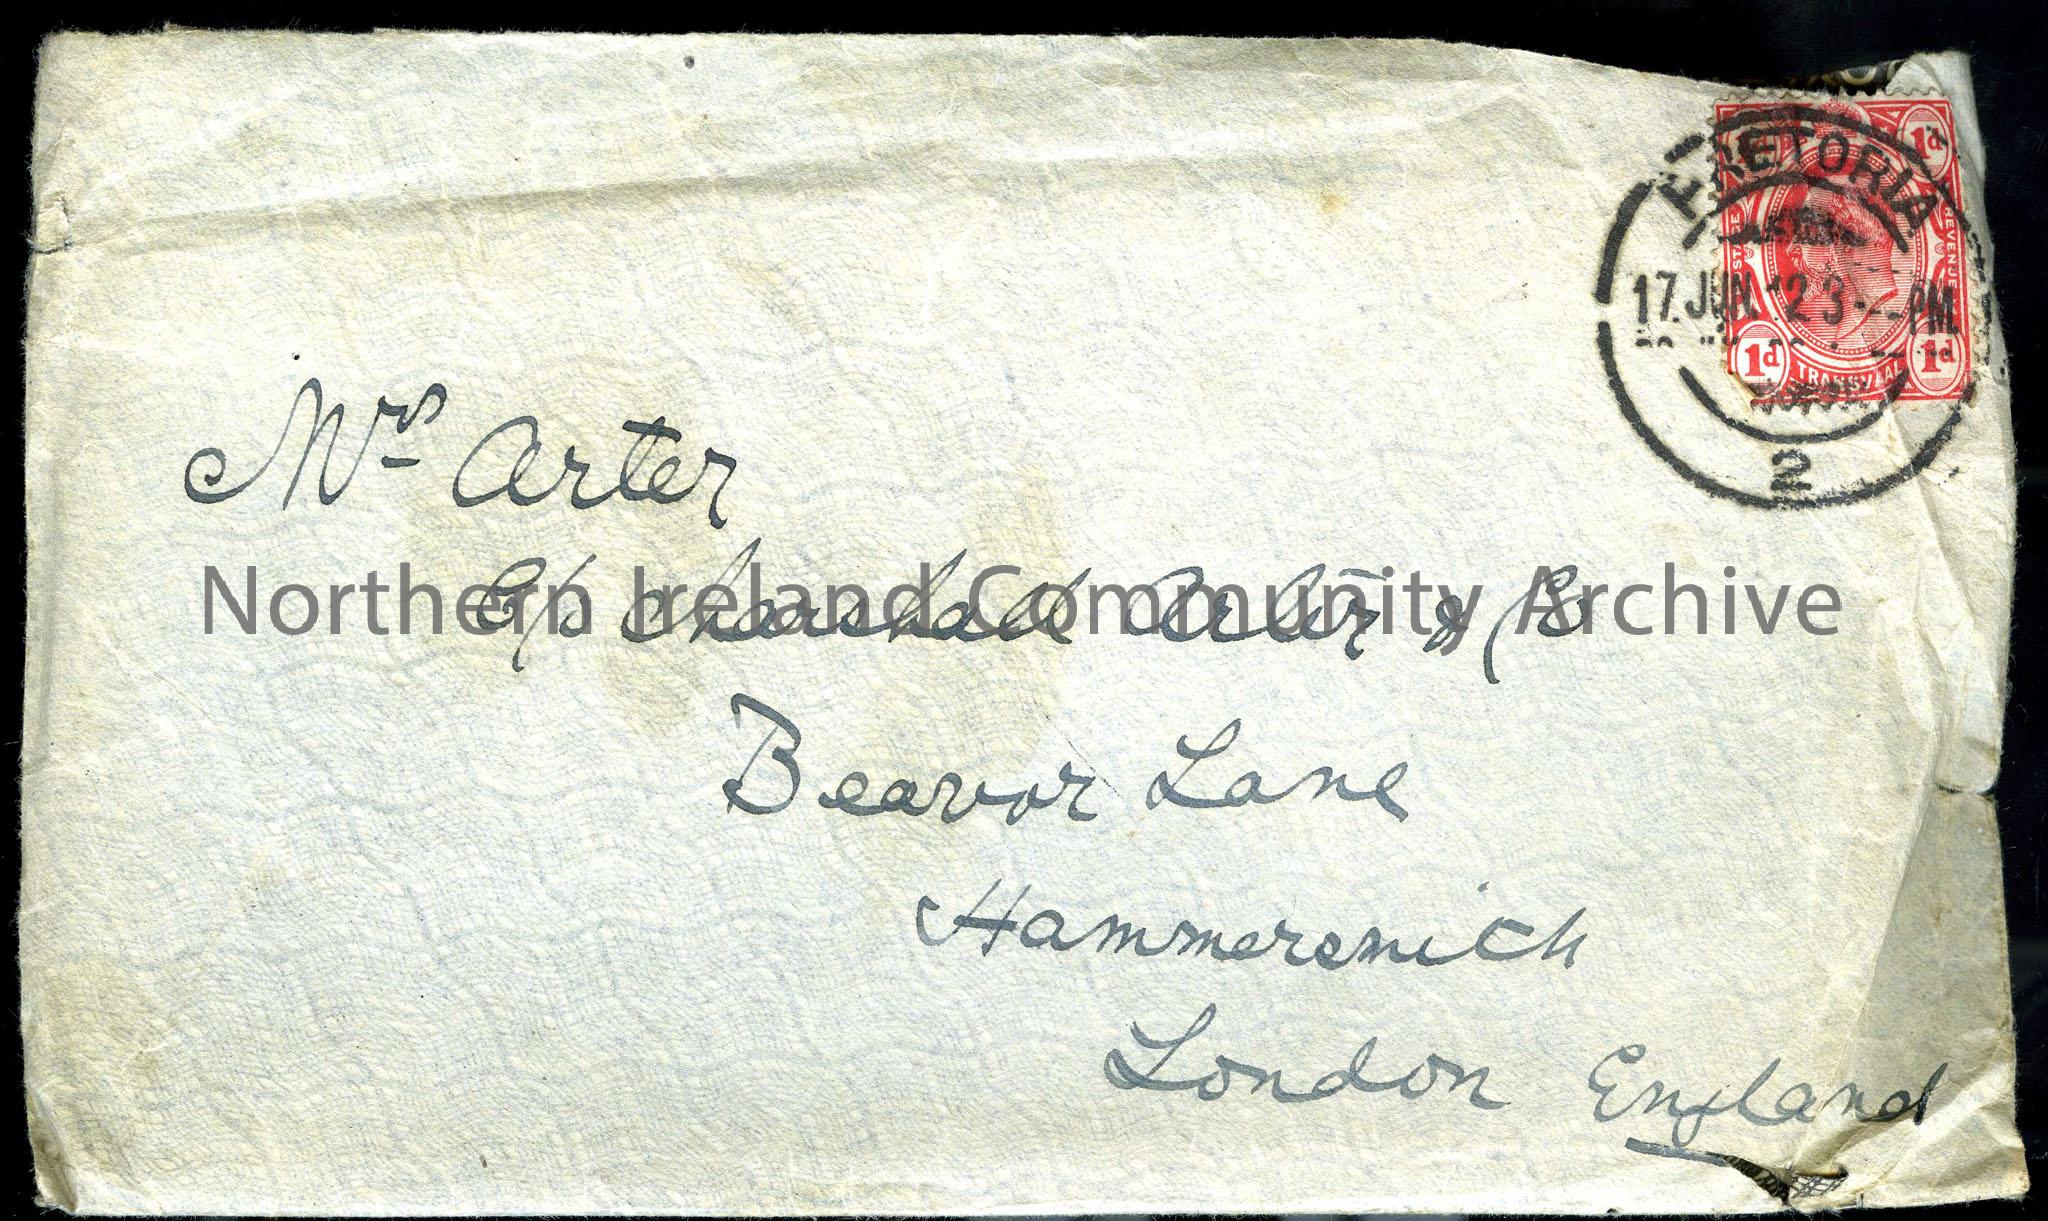 PRETORIA
1d
POSTAGE
REVENUE
17 JUN. 12 3 - PM
1d TRANSVAAL 1d
2
Mrs Arter
C/o Marshall Arter & Co
Northern Ireland Community Archive
Beavor Lane
Hammersmith
London England